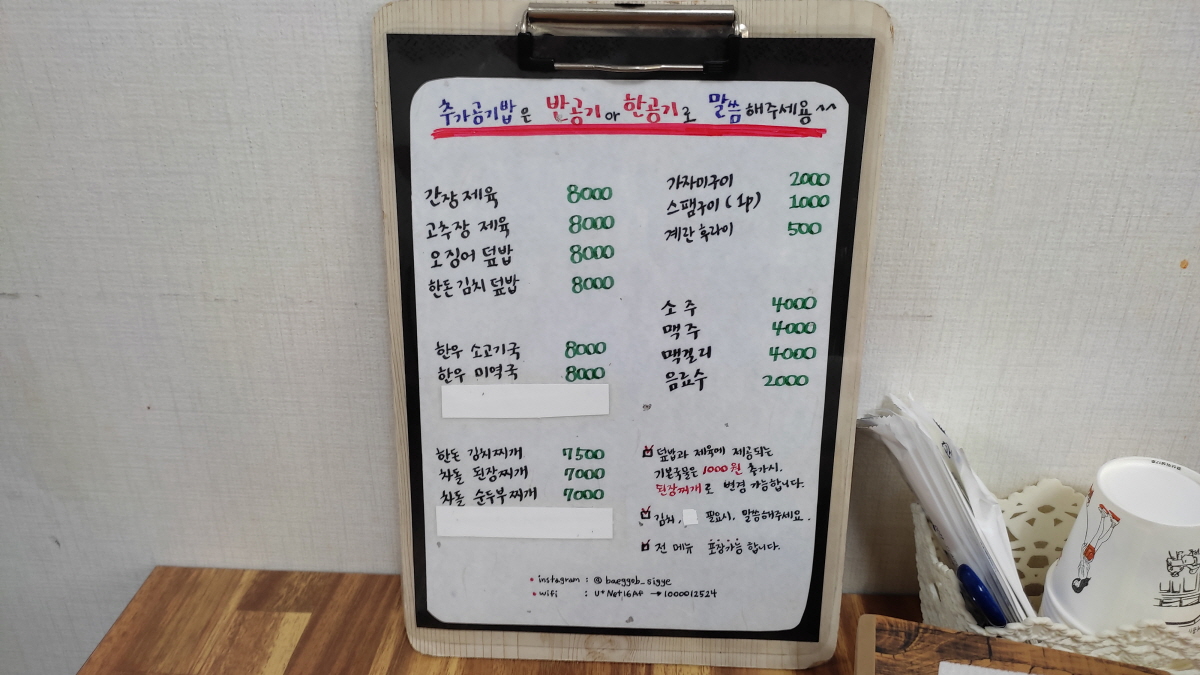 추가공기밥은 반공기아 한공기로 말씀해주세용^^
간장 제육 8000
고추장 제육 8000
오징어 덮밥 8000
한돈 김치 덮밥 8000
한우 소고기국 8000
한우 미역국 8000
한돈 김치찌개 7500
차돌 된장찌개 7000
차돌 순두부찌개 7000
가자미구이 2000
스팸구이 (1p) 1000
계란 후라이 500
소주 4000
맥주 4000
맥걸리 4000
음료수 2000
덮밥과 제육에 제공되는
기본국물은 1000원 추가시,
된장찌개로 변경 가능합니다.
김치, 필요시, 말씀해주세요.
전 메뉴 포장가능 합니다.
instagram : @baeggob_sigye
wifi : U+Net16AF → 1000012524